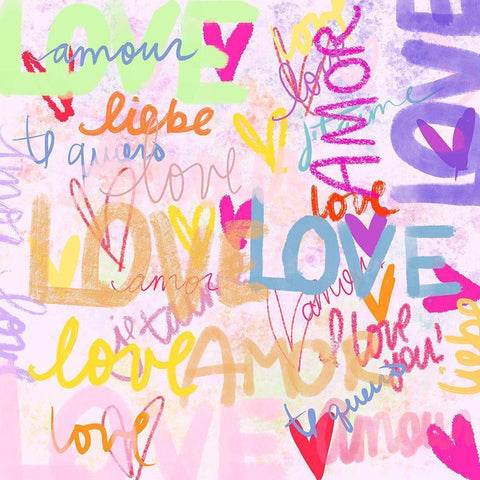 LOVE
amour
love
love
AMOR
LOVE
liebe
te quiero
je t'aime
love
love
LOVE
LOVE
amor
amour
amour
je t'aime
love
AMOR
I love you!
liebe
te quiero
love
LOVE
amour